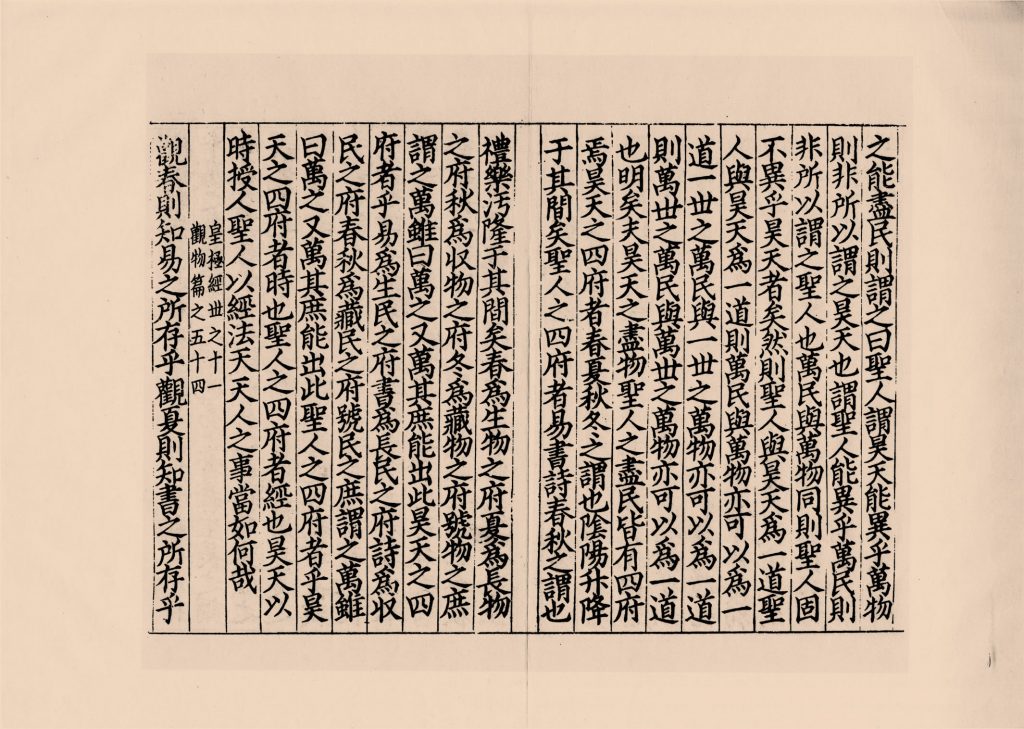 之能盡民則謂之曰聖人謂昊天能異乎萬物
則非所以謂之昊天也謂聖人能異乎萬民則
非所以謂之聖人也萬民與萬物同則聖人固
不異乎昊天者矣然則聖人與昊天為一道聖
人與昊天為一道則萬民與萬物亦可以為一
道一丗之萬民與一丗之萬物亦可以為一道
則萬丗之萬民與萬丗之萬物亦可以為一道
也明矣夫昊天之盡物聖人之盡民皆有四府
焉昊天之四府者春夏秋冬之謂也陰陽升降
于其間矣聖人之四府者易書詩春秋之謂也
禮樂污隆于其間矣春為生物之府夏為長物
之府秋為収物之府冬為藏物之府號物之庶
謂之萬雖曰萬之又萬其庶能出此昊天之四
府者乎易為生民之府書為長民之府詩為収
民之府春秋為藏民之府號民之庶謂之萬雖
曰萬之又萬其庶能出此聖人之四府者乎昊
天之四府者時也聖人之四府者經也昊天以
時授人聖人以經法天天人之事當如何哉
皇極經丗之十一
觀物篇之五十四
觀春則知易之所存乎觀夏則知書之所存乎